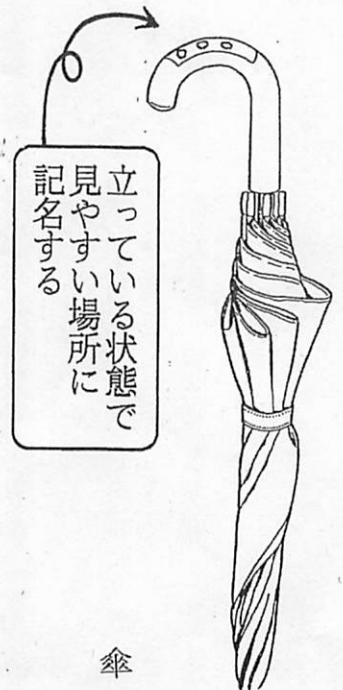 立っている状態で
見やすい場所に
記名する
傘